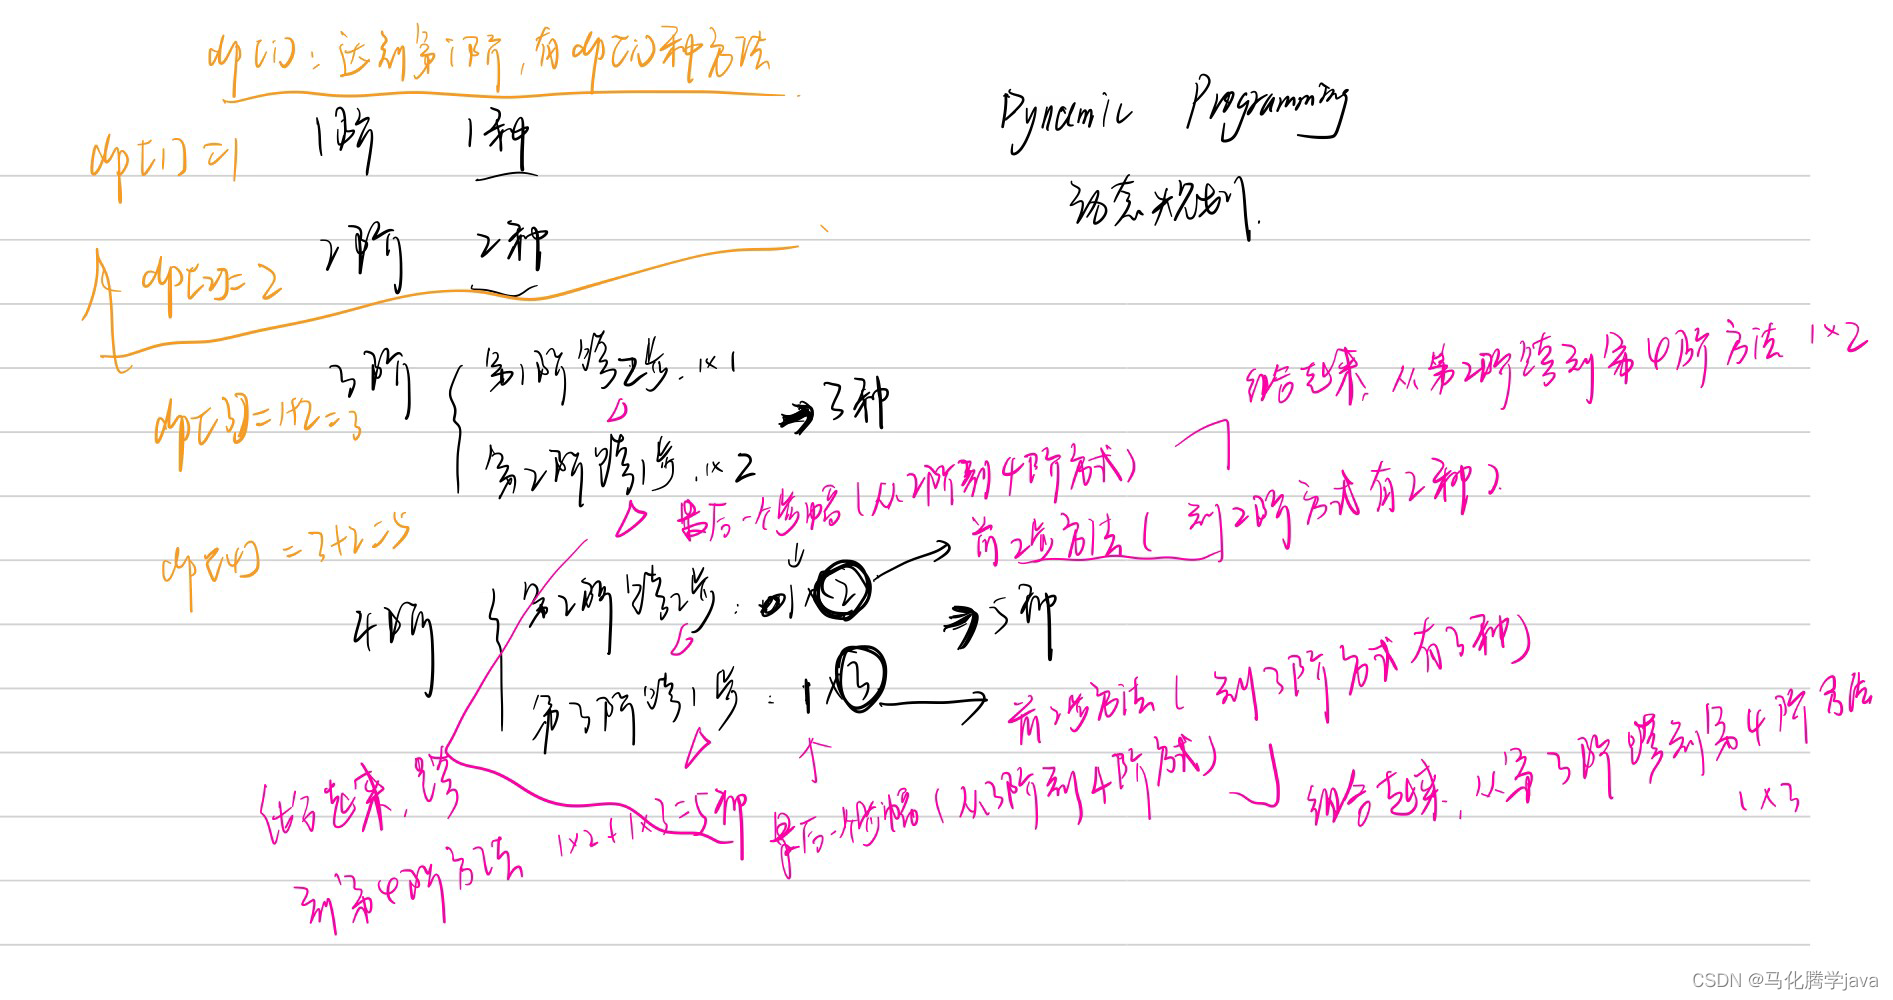 dp[i]:达到第i阶,有dp[i]种方法
Dynamic Programming
动态规划.
dp[1]=1
1阶 1种
dp[2]=2
2阶 2种
dp[3]=1+2=3
3阶
第1阶跨2步.1×1
第2阶跨1步.1×2
3种
组合起来,从第2阶跨到第4阶方法 1×2
最后一个步幅(从2阶到4阶方式)
前2步方法(到2阶方式有2种)
dp[4]=3+2=5
4阶
第2阶跨2步:1×2
第3阶跨1步:1×3
5种
前2步方法(到3阶方式有3种)
最后一个步幅(从3阶到4阶方式)
组合起来,从第3阶跨到第4阶方法
1×3
结合起来,跨
到第4阶方法 1×2+1×3=5种
CSDN @马化腾学java